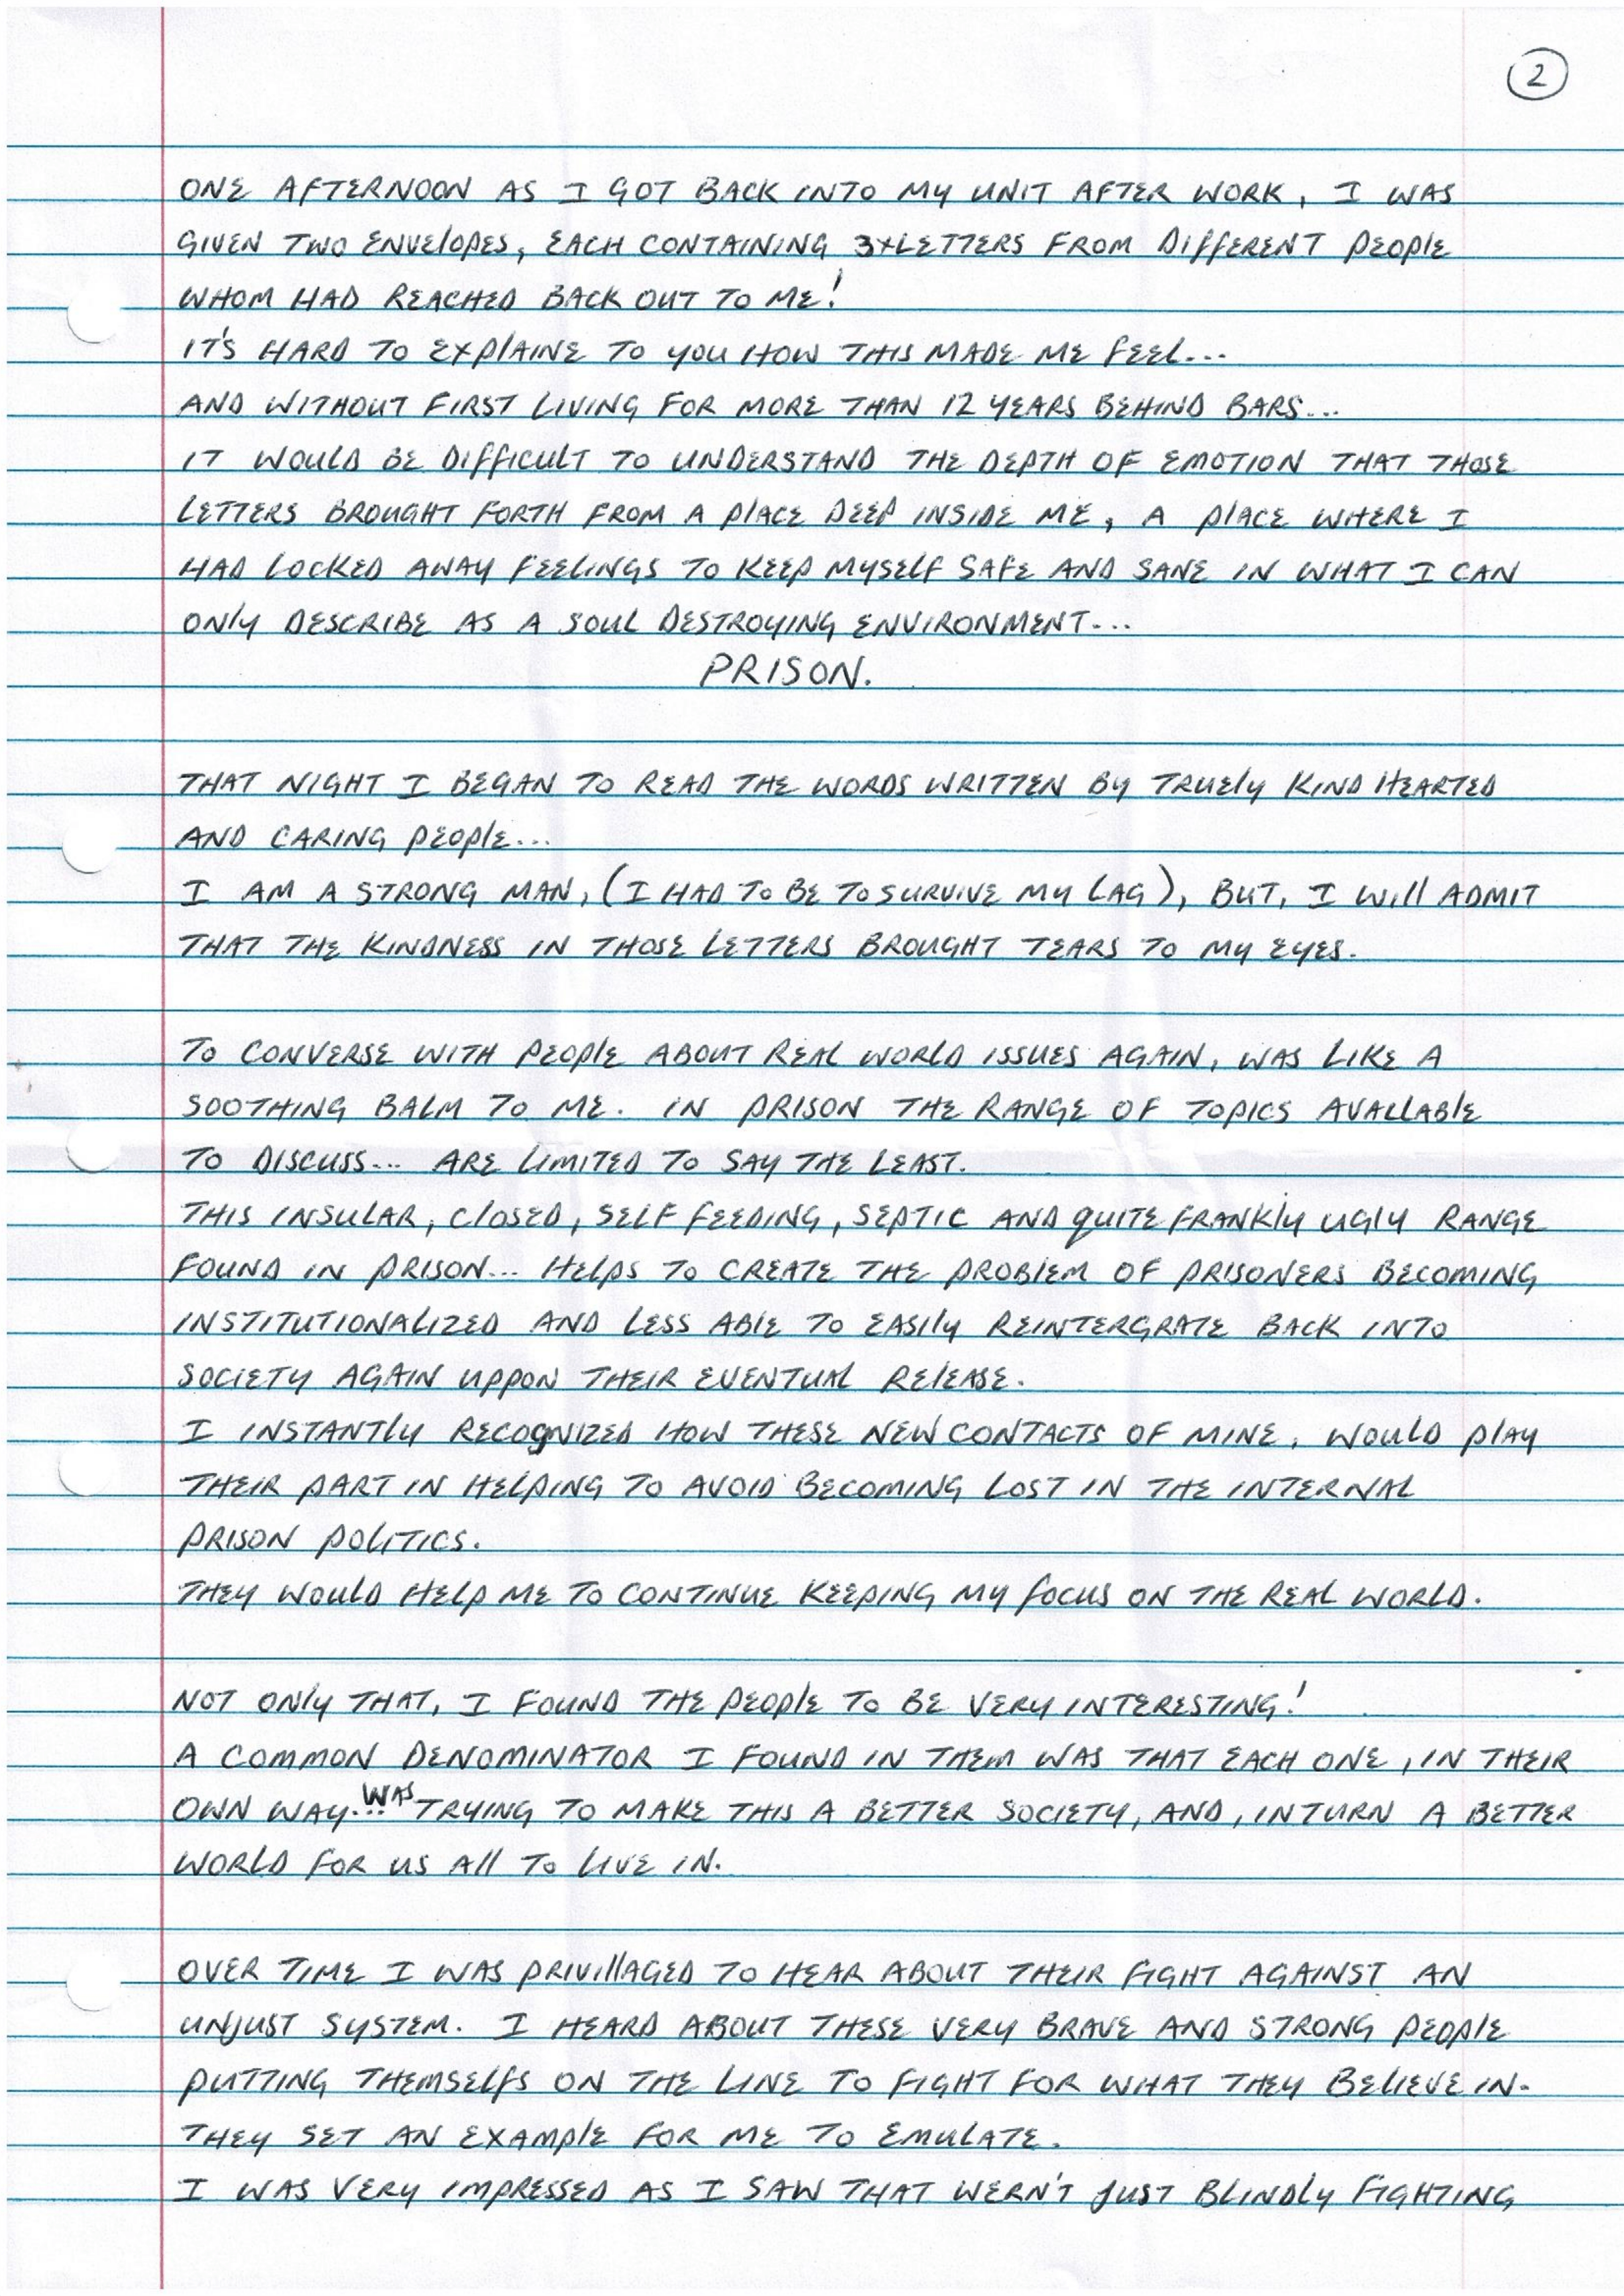 2
ONE AFTERNOON AS I GOT BACK INTO MY UNIT AFTER WORK, I WAS
GIVEN TWO ENVELOPES, EACH CONTAINING 3+LETTERS FROM DIFFERENT PEOPLE
WHOM HAD REACHED BACK OUT TO ME!
IT'S HARD TO EXPLAINE TO YOU HOW THIS MADE ME FEEL...
AND WITHOUT FIRST LIVING FOR MORE THAN 12 YEARS BEHIND BARS...
IT WOULD BE DIFFICULT TO UNDERSTAND THE DEPTH OF EMOTION THAT THOSE
LETTERS BROUGHT FORTH FROM A PLACE DEEP INSIDE ME, A PLACE WHERE I
HAD LOCKED AWAY FEELINGS TO KEEP MYSELF SAFE AND SANE IN WHAT I CAN
ONLY DESCRIBE AS A SOUL DESTROYING ENVIRONMENT...
PRISON.
THAT NIGHT I BEGAN TO READ THE WORDS WRITTEN BY TRUELY KIND HEARTED
AND CARING PEOPLE...
I AM A STRONG MAN, (I HAD TO BE TO SURVIVE MY LAG), BUT, I WILL ADMIT
THAT THE KINDNESS IN THOSE LETTERS BROUGHT TEARS TO MY EYES.
TO CONVERSE WITH PEOPLE ABOUT REAL WORLD ISSUES AGAIN, WAS LIKE A
SOOTHING BALM TO ME. IN PRISON THE RANGE OF TOPICS AVALLABLE
TO DISCUSS... ARE LIMITED TO SAY THE LEAST.
THIS INSULAR, CLOSED, SELF FEEDING, SEPTIC AND QUITE FRANKLY UGLY RANGE
FOUND IN PRISON... HELPS TO CREATE THE PROBLEM OF PRISONERS BECOMING
INSTITUTIONALIZED AND LESS ABLE TO EASILY REINTERGRATE BACK INTO
SOCIETY AGAIN UPPON THEIR EVENTUAL RELEASE.
I INSTANTLY RECOGNIZED HOW THESE NEW CONTACTS OF MINE, WOULD PLAY
THEIR PART IN HELPING TO AVOID BECOMING LOST IN THE INTERNAL
PRISON POLITICS.
THEY WOULD HELP ME TO CONTINUE KEEPING MY FOCUS ON THE REAL WORLD.
NOT ONLY THAT, I FOUND THE PEOPLE TO BE VERY INTERESTING!
A COMMON DENOMINATOR I FOUND IN THEM WAS THAT EACH ONE, IN THEIR
OWN WAY... WAS TRYING TO MAKE THIS A BETTER SOCIETY, AND, INTURN A BETTER
WORLD FOR US ALL TO LIVE IN.
OVER TIME I WAS PRIVILLAGED TO HEAR ABOUT THEIR FIGHT AGAINST AN
UNJUST SYSTEM. I HEARD ABOUT THESE VERY BRAVE AND STRONG PEOPLE
PUTTING THEMSELFS ON THE LINE TO FIGHT FOR WHAT THEY BELIEVE IN.
THEY SET AN EXAMPLE FOR ME TO EMULATE.
I WAS VERY IMPRESSED AS I SAW THAT WERN'T JUST BLINDLY FIGHTING